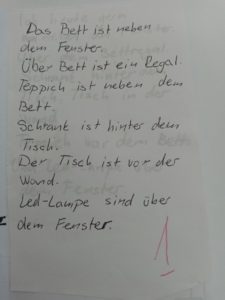 Das Bett ist neben
dem Fenster.
Über Bett ist ein Regal.
Teppich ist neben dem
Bett.
Schrank ist hinter dem
Tisch.
Der Tisch ist vor der
Wand.
Led-Lampe sind über
dem Fenster.
1